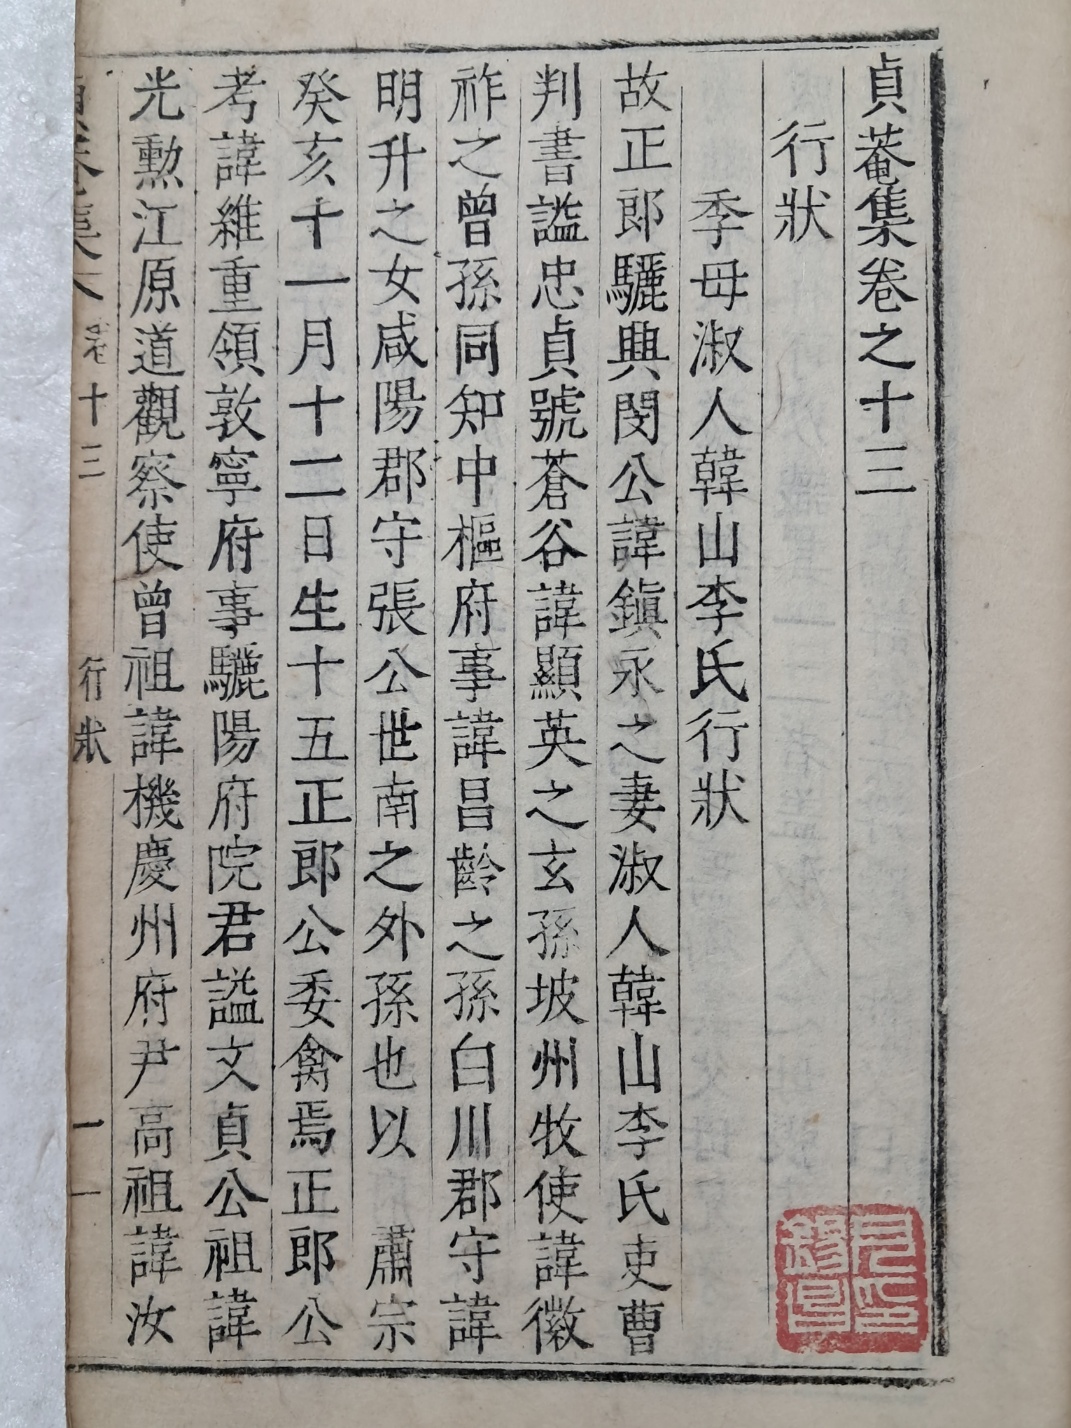 貞菴集卷之十三
行狀
季母淑人韓山李氏行狀
故正郎驪興閔公諱鎭永之妻淑人韓山李氏吏曹
判書謚忠貞號蒼谷諱顯英之玄孫坡州牧使諱徽
祚之曾孫同知中樞府事諱昌齡之孫白川郡守諱
明升之女咸陽郡守張公世南之外孫也以 肅宗
癸亥十一月十二日生十五正郎公委禽焉正郎公
考諱維重領敦寧府事驪陽府院君謚文貞公祖諱
光勲江原道觀察使曾祖諱機慶州府尹高祖諱汝
卷十三 行狀 一